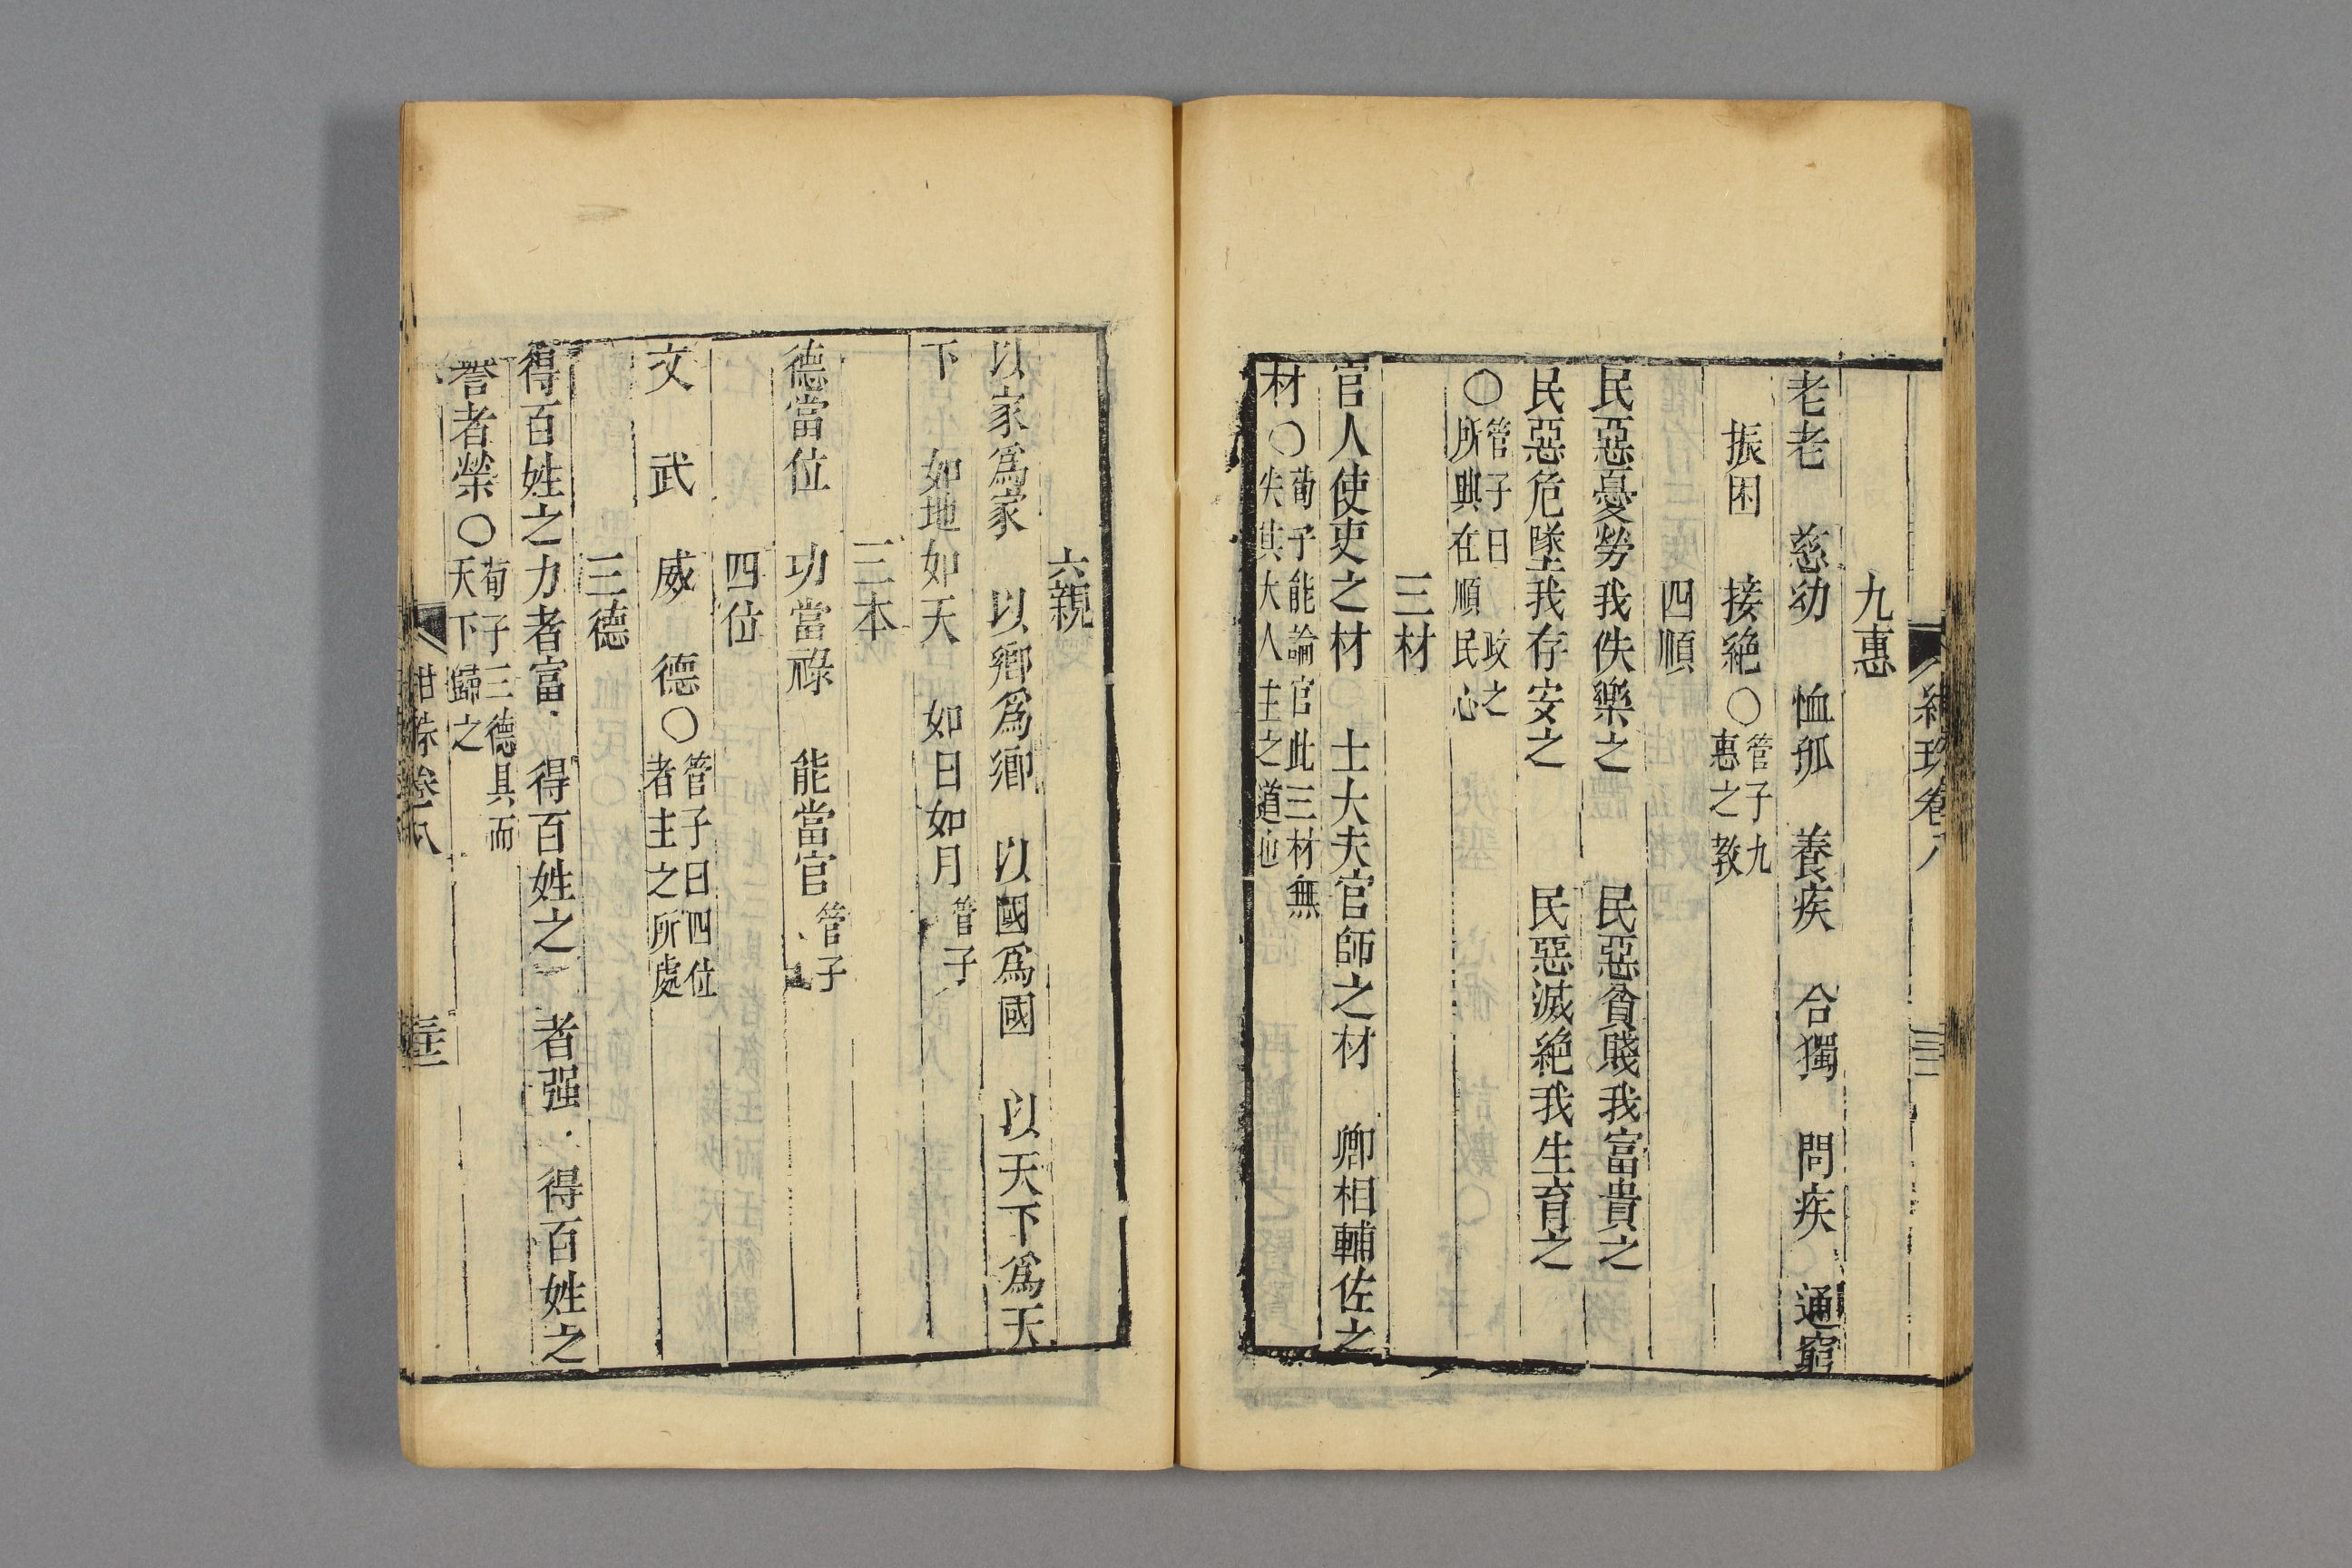 九惠
老老　慈幼　恤孤　養疾　合獨　問疾　通窮
振困　接絶○管子九惠之教
四順
民惡憂勞我佚樂之　民惡貧賤我富貴之
民惡危墜我存安之　民惡滅絶我生育之
○管子曰政之所興在順民心
三材
官人使吏之材　士大夫官師之材　卿相輔佐之
材○荀子能論官此三材無失其大人主之道也
六親
以家爲家　以鄉爲鄉　以國爲國　以天下爲天
下　如地如天　如日如月管子
三本
德當位　功當祿　能當官管子
四位
文　武　威　德○管子曰四位者主之所處
三德
得百姓之力者富　得百姓之　者强　得百姓之
譽者榮○荀子三德具而天下歸之
卷八